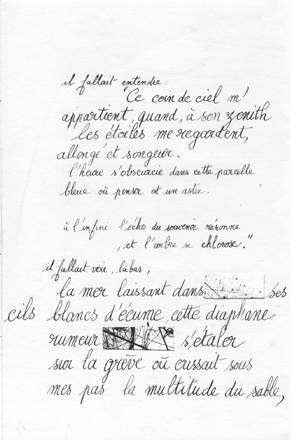 il fallait entendre :
"Ce coin de ciel m'
appartient, quand, à son zénith
les étoiles me regardent,
allongé et songeur.
l'heure s'obscurcie dans cette
bleue où penser est un astre.
à l'infini l'écho du souvenir résonne
, et l'ombre se chlorose."
il fallait voir, là bas,
la mer laissant dans ses
cils blancs d'écume cette diaphane
rumeur s'étaler
sur la grève où crissait sous
mes pas la multitude du sable,